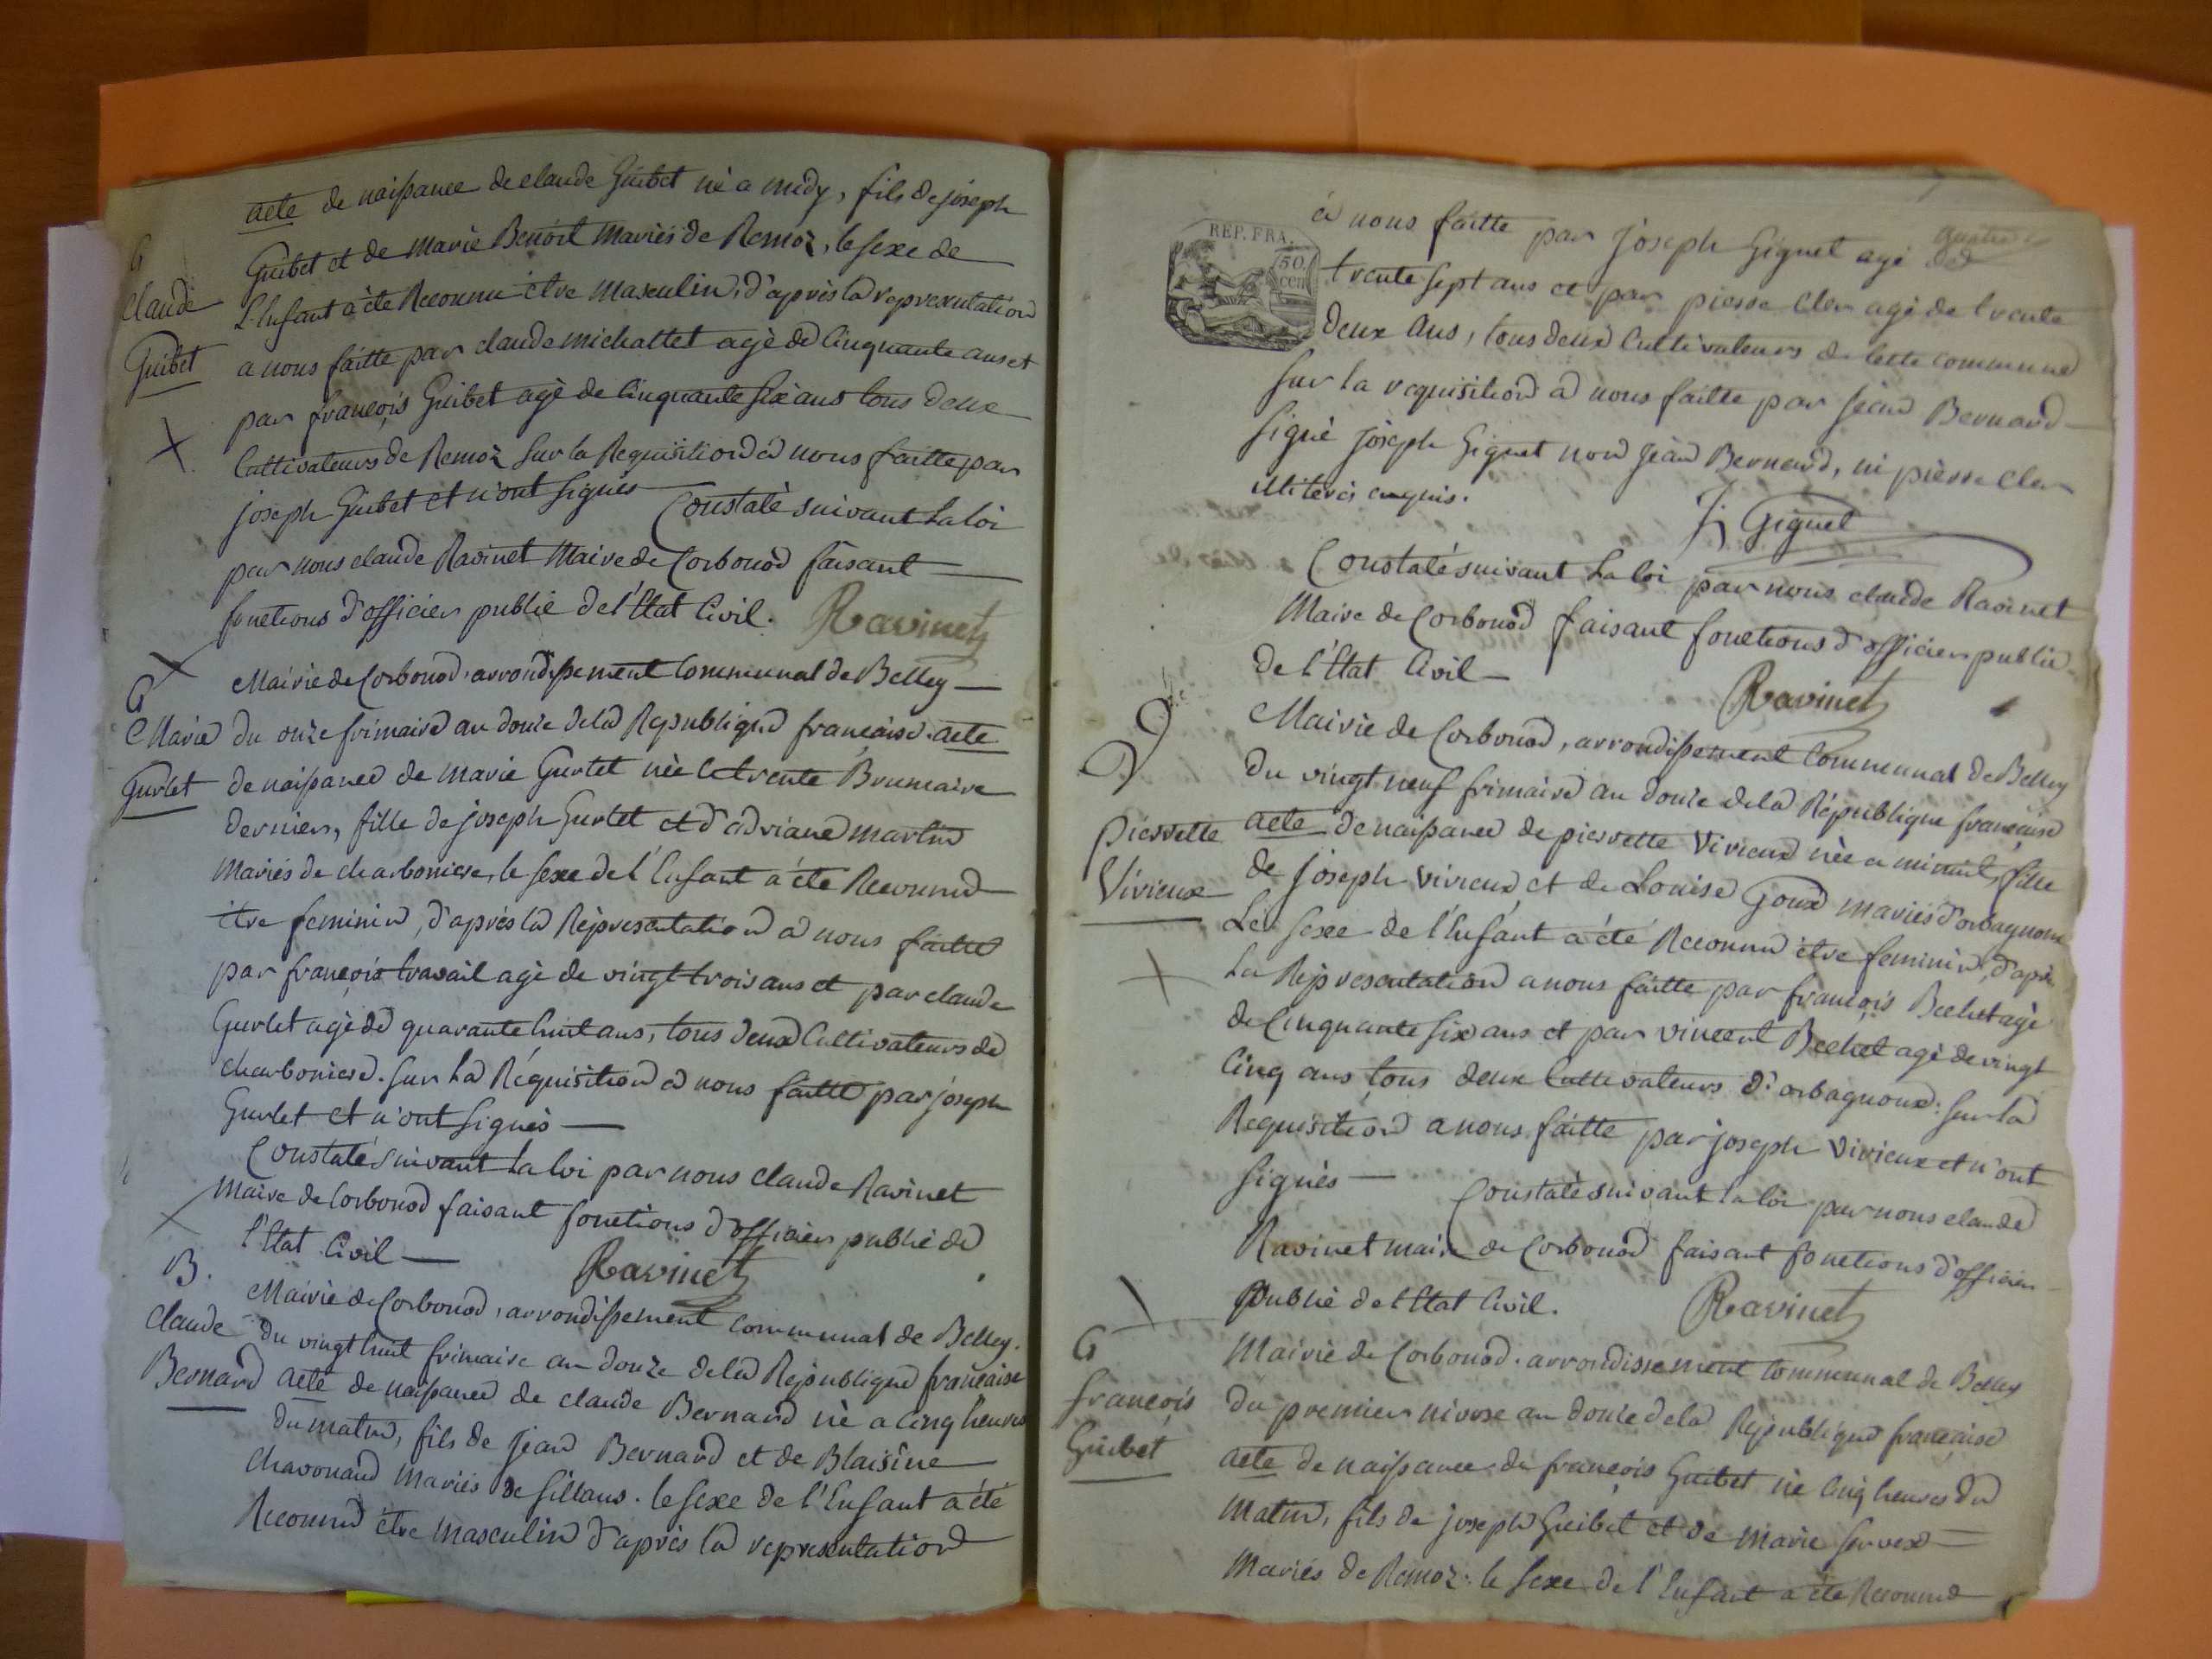 acte de naissance de claude Guibet nè a midy, fils de joseph
Guibet et de marie Benoit mariés de Remoz, le sexe de
L'Enfant à été Reconnu être masculin, d'après la representation
a nous faitte par claude michallet agè de Cinquante ans et
par françois Guibet agè de Cinquante six ans tous deux
Cultivateurs de Remoz sur la Requisition à nous faitte par
joseph Guibet et n'ont signés
Constatè suivant la loi
par nous claude Ravinet Maire de Corbonod faisant
fonctions d'officier public de l'Etat Civil. Ravinet
G
claude
Guibet
Mairie de Corbonod, arrondissement Communal de Belley
du onze frimaire an douze de la Republique française. acte
de naissance de marie Gurlet née le trente Brumaire
dernier, fille de joseph Gurlet et d'adriane martin
mariés de charboniere, le sexe de l'Enfant a été Reconnu
être feminin, d'après la Réprésentation a nous faitte
par françois travail agè de vingt trois ans et par claude
Gurlet agè de quarante huit ans, tous deux Cultivateurs de
charboniere. sur la Réquisition a nous faitte par joseph
Gurlet et n'ont signès
Constaté suivant la loi par nous claude Ravinet
maire de Corbonod faisant fonctions d'officier public de
l'Etat Civil Ravinet
G
Marie
Gurlet
Mairie de Corbonod, arrondissement communal de Belley.
du vingt huit frimaire an douze de la Republique française
acte de naissance de claude Bernard nè a cinq heures
du matin, fils de jean Bernard et de Blaisine
Chavonand mariés de sillans. le sexe de l'Enfant a été
Reconnu être masculin d'après la representation
B.
claude
Bernard
REP. FRA.
50
cen
quatre
à nous faitte par joseph Giguet agè de
trente sept ans et par pierre Cler agè de trente
deux ans, tous deux Cultivateurs de cette commune
sur la requisition a nous faitte par jean Bernard
signè joseph Giguet non jean Bernard, ni pierre Cler
illiterés enquis.
J. Giguet
Constaté suivant la loi par nous claude Ravinet
Maire de Corbonod faisant fonctions d'officier public
de l'Etat Civil
Ravinet
Mairie de Corbonod, arrondissement Communal de Belley
du vingt neuf frimaire an douze de la République française
acte de naissance de pierrette Vivieux nèe a minuit, fille
de joseph vivieux et de Louise Goux mariés d'orbagnoux
Le sexe de l'Enfant a été Reconnu être feminin, d'après
la Réprésentation a nous faitte par françois Bechet agè
de Cinquante six ans et par vincent Bechet agè de vingt
Cinq ans tous deux Cultivateurs d'orbagnoux: sur la
Requisition a nous faitte par joseph vivieux et n'ont
signès Constatè suivant la loi par nous claude
Ravinet maire de Corbonod faisant fonctions d'officier
public de l'Etat Civil. Ravinet
pierrette
Vivieux
Mairie de Corbonod. arrondissement Communal de Belley
du premier nivose an douze de la République française
acte de naissance de françois Guibet nè Cinq heures du
matin, fils de joseph Guibet et de marie
mariés de Remoz. le sexe de l'Enfant a été Reconnu
G
françois
Guibet